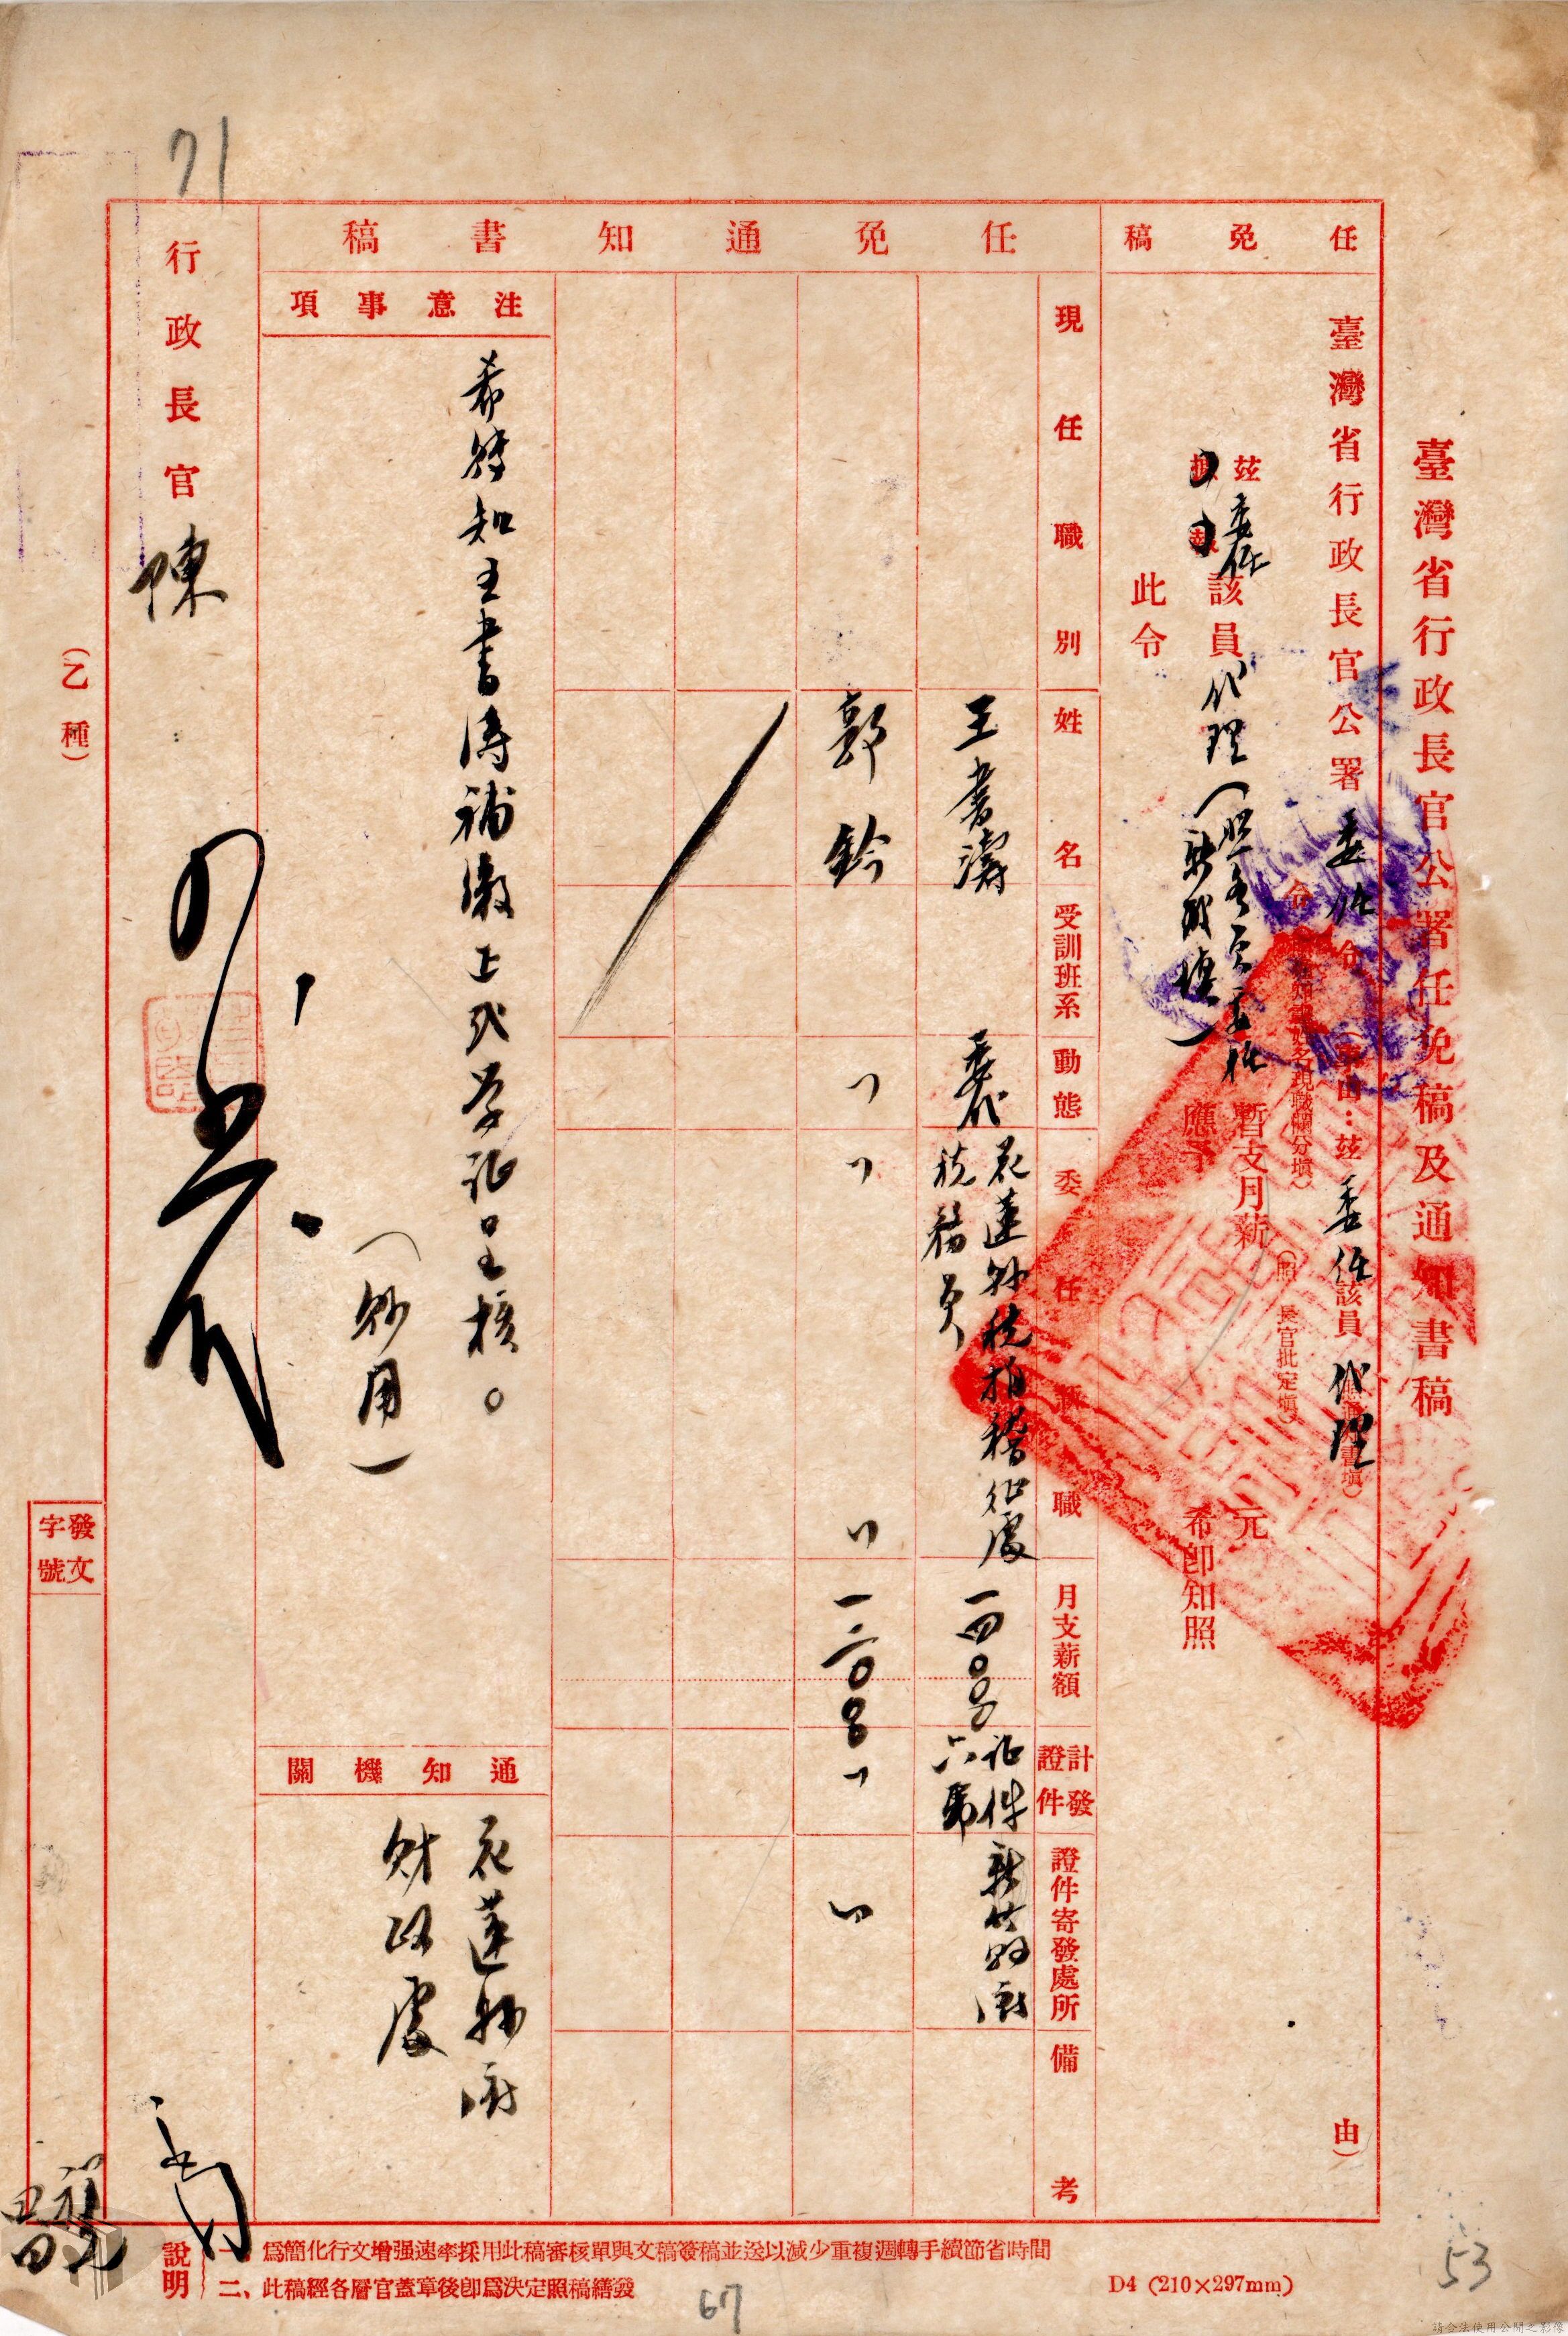 臺灣省行政長官公署任免稿及通知書稿
任免稿
臺灣省行政長官公署委任令
(事由:茲委任該員代理
由)
茲委任該員代理(照各員委任
新職填)
暫支月薪
(照長官批定填)
元
應予
希即知照
此令
任免通知書稿
現任職別
姓名
受訓班系
動態
委任新職
月支薪額
計發證件
證件寄發處所
備考
王書濤
委代
花蓮縣稅捐稽征處
稅務員
一四〇号
证件
六号
郭鈴
〃
〃
〃
一二〇号
〃
〃
注意事項
希轉知王書濤補繳上代学证呈核。
(郭用)
通知機關
花蓮縣府
財政處
行政長官陳
(乙種)
發文字號
說明
一、爲簡化行文增强速率採用此稿審核單與文稿簽稿並送以減少重複週轉手續節省時間
二、此稿經各層官蓋章後卽爲決定照稿繕發
D4(210×297mm)
71
67
53
請合法使用公開之影像